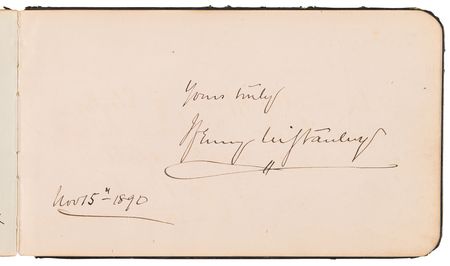 Yours truly
Henry M Stanley
Nov 15th 1890